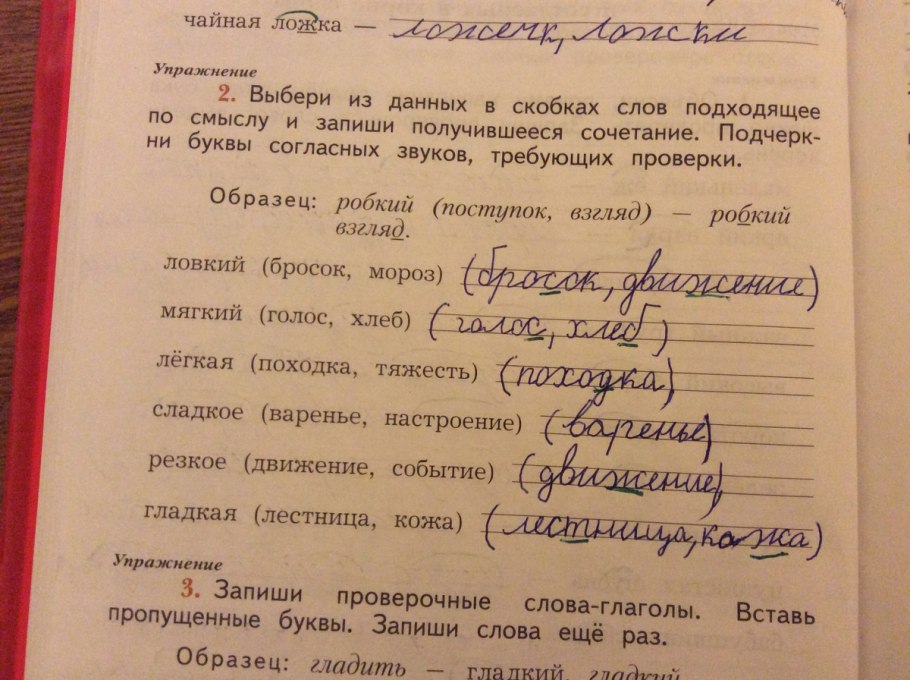 чайная ложка — ложечк, ложки
Упражнение
2. Выбери из данных в скобках слов подходящее
по смыслу и запиши получившееся сочетание. Подчерк-
ни буквы согласных звуков, требующих проверки.
Образец: робкий (поступок, взгляд) — робкий
взгляд.
ловкий (бросок, мороз) (бросок, движение)
мягкий (голос, хлеб) (голос, хлеб)
лёгкая (походка, тяжесть) (походка)
сладкое (варенье, настроение) (варенье)
резкое (движение, событие) (движение)
гладкая (лестница, кожа) (лестница, кожа)
Упражнение
3. Запиши проверочные слова-глаголы. Вставь
пропущенные буквы. Запиши слова ещё раз.
Образец: гладить — гладкий, гладкий.